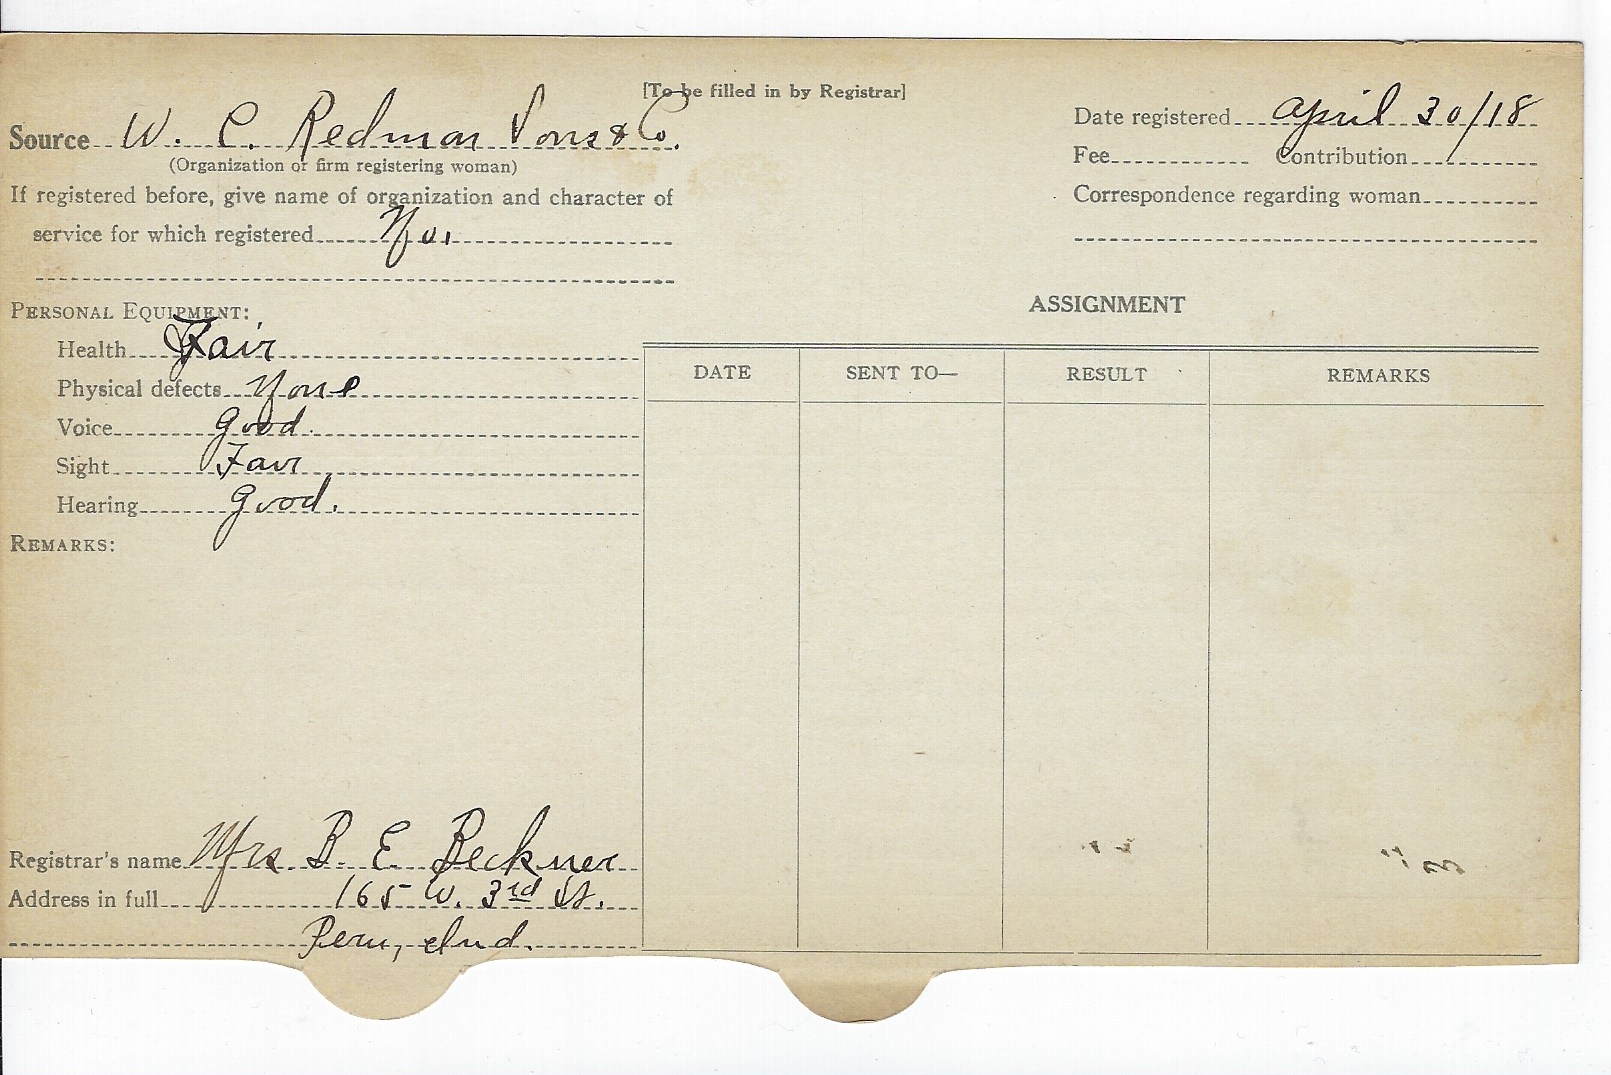 [To be filled in by Registrar]
Source W. C. Redmon Sons & Co.
(Organization or firm registering woman)
If registered before, give name of organization and character of
service for which registered No.
Date registered April 30/18
Fee Contribution
Correspondence regarding woman
PERSONAL EQUIPMENT:
Health Fair
Physical defects None
Voice Good.
Sight Fair
Hearing Good.
REMARKS:
Registrar's name Mrs. B. E. Beckner
Address in full 165 W. 3rd St.
Peru, Ind.
ASSIGNMENT
DATE SENT TO— RESULT REMARKS